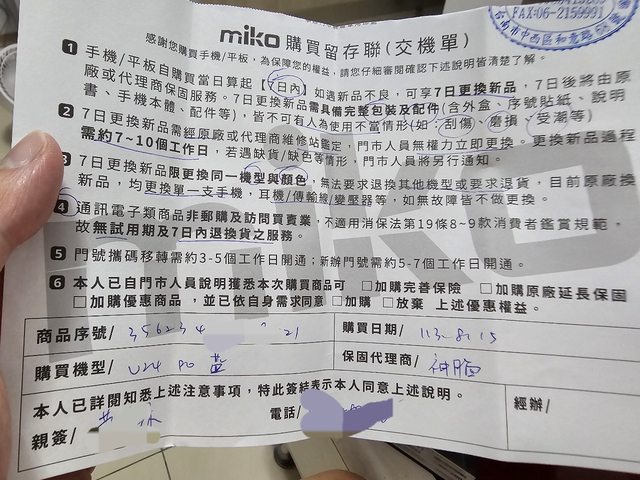 FAX:06-2159991
台南市中西區和意路
miko 購買留存聯(交機單)
感謝您購買手機/平板,為保障您的權益,請您仔細審閱確認下述說明皆清楚了解。
1 手機/平板自購買當日算起【7日內】如遇新品不良,可享7日更換新品,7日後將由原
廠或代理商保固服務。7日更換新品需具備完整包裝及配件(含外盒、序號貼紙、說明
書、手機本體、配件等),皆不可有人為使用不當情形(如:刮傷、磨損、受潮等)
2 7日更換新品需經原廠或代理商維修站鑑定,門市人員無權力立即更換。更換新品過程
需約7~10個工作日,若遇缺貨/缺色等情形,門市人員將另行通知。
3 7日更換新品限更換同一機型與顏色,無法要求退換其他機型或要求退貨,目前原廠換
新品,均更換單一支手機,耳機/傳輸線/變壓器等,如無故障皆不做更換。
4 通訊電子類商品非郵購及訪問買賣業,不適用消保法第19條8~9款消費者鑑賞規範,
故無試用期及7日內退換貨之服務。
5 門號攜碼移轉需約3-5個工作日開通;新辦門號需約5-7個工作日開通。
6 本人已自門市人員說明獲悉本次購買商品可 □加購完善保險 □加購原廠延長保固
□加購優惠商品,並已依自身需求同意 □加購 □放棄 上述優惠權益。
商品序號/ 356234 21
購買日期/ 113.8.15
購買機型/ U24 PO 藍
保固代理商/ 神腦
本人已詳閱知悉上述注意事項,特此簽結表示本人同意上述說明。
親簽/
電話/
經辦/